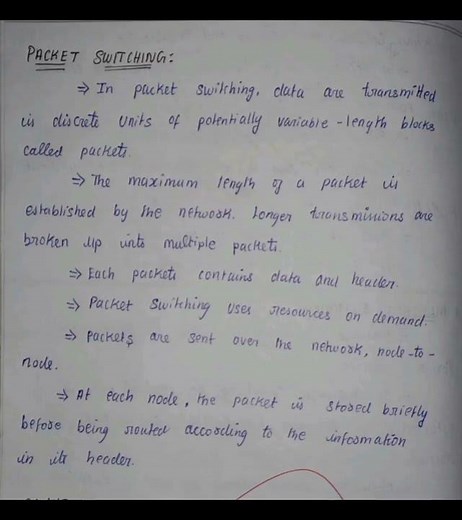 PACKET SWITCHING:
⇒ In packet switching, data are transmitted
in discrete units of potentially variable-length blocks
called packets.
⇒ The maximum length of a packet is
established by the network. Longer transmissions are
broken up into multiple packets.
⇒ Each packets contains data and header.
⇒ Packet switching uses resources on demand.
⇒ Packets are sent over the network, node-to-
node.
⇒ At each node, the packet is stored briefly
before being routed according to the information
in its header.